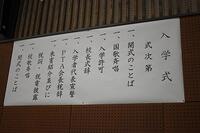 入学式
式次第
一、開式のことば
一、国歌斉唱
一、入学許可
一、校長式辞
一、入学者代表宣誓
一、PTA会長祝辞
一、来賓紹介並びに
祝詞・祝電披露
一、校歌斉唱
一、閉式のことば